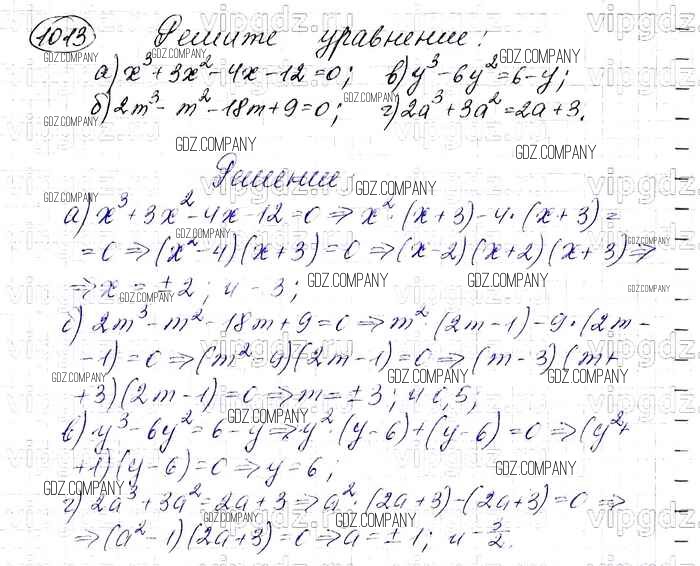 1013 Решите уравнение:
а) x³ + 3x² - 4x - 12 = 0; в) y³ - 6y² = 6 - y;
б) 2m³ - m² - 18m + 9 = 0; г) 2a³ + 3a² = 2a + 3.
Решение:
а) x³ + 3x² - 4x - 12 = 0 ⇒ x² · (x + 3) - 4 · (x + 3) =
= 0 ⇒ (x² - 4)(x + 3) = 0 ⇒ (x - 2)(x + 2)(x + 3) ⇒
⇒ x = ±2; и - 3;
б) 2m³ - m² - 18m + 9 = 0 ⇒ m² · (2m - 1) - 9 · (2m -
- 1) = 0 ⇒ (m² - 9)(2m - 1) = 0 ⇒ (m - 3)(m +
+ 3)(2m - 1) = 0 ⇒ m = ±3; и 0,5;
в) y³ - 6y² = 6 - y ⇒ y² · (y - 6) + (y - 6) = 0 ⇒ (y² +
+ 1)(y - 6) = 0 ⇒ y = 6;
г) 2a³ + 3a² = 2a + 3 ⇒ a² · (2a + 3) - (2a + 3) = 0 ⇒
⇒ (a² - 1)(2a + 3) = 0 ⇒ a = ±1; и - 3/2.
GDZ.COMPANY
vipgdz.ru